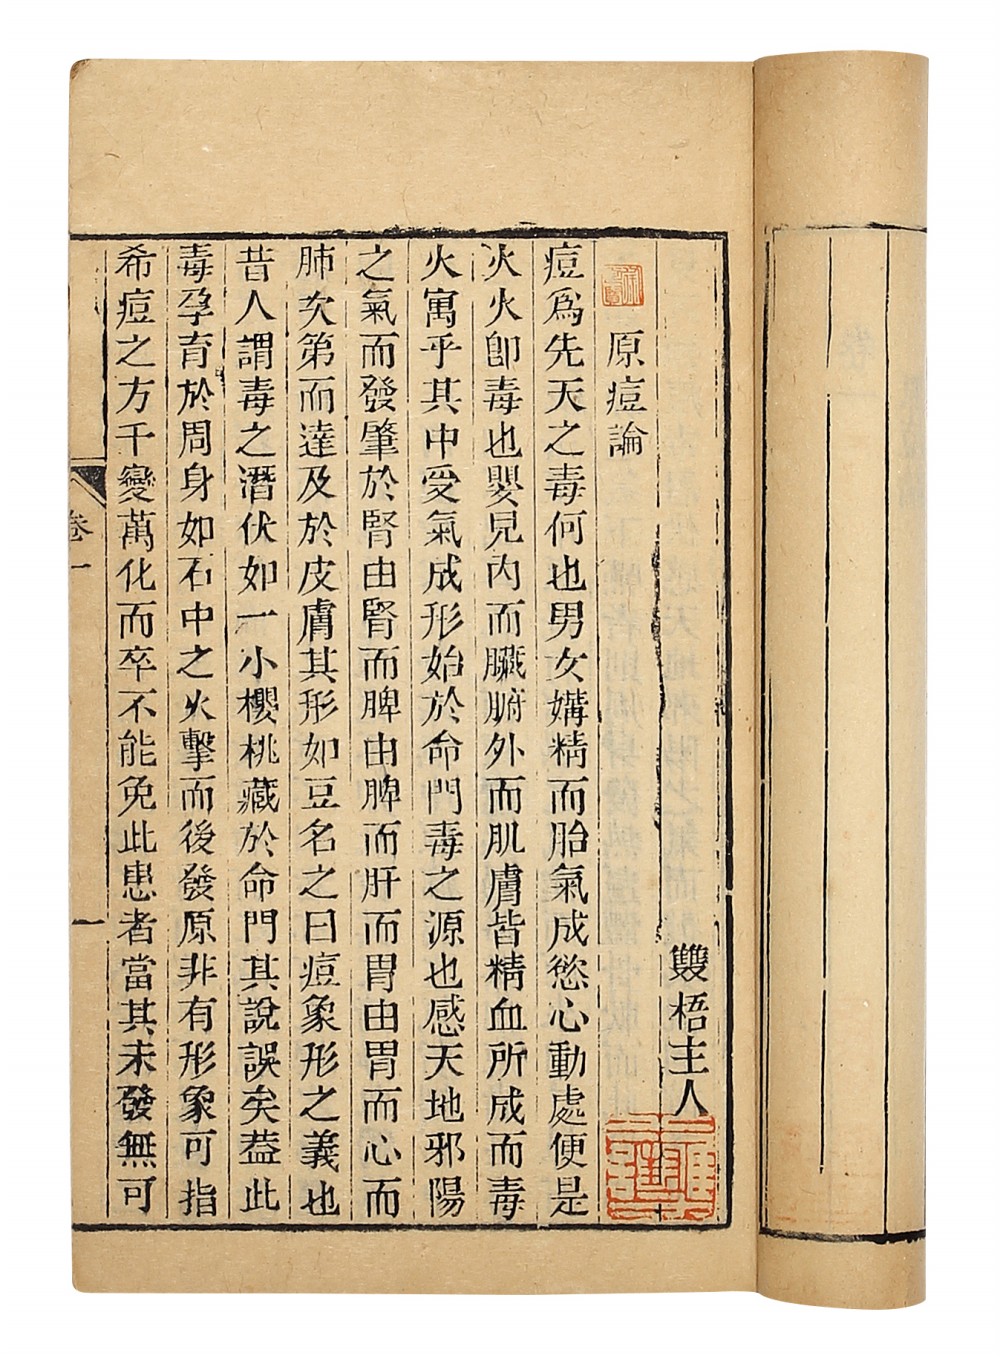 雙梧主人
原痘論
痘爲先天之毒何也男女媾精而胎氣成慾心動處便是
火火卽毒也嬰兒內而臟腑外而肌膚皆精血所成而毒
火寓乎其中受氣成形始於命門毒之源也感天地邪陽
之氣而發肇於腎由腎而脾由脾而肝而胃由胃而心而
肺次第而達及於皮膚其形如豆名之曰痘象形之義也
昔人謂毒之潛伏如一小櫻桃藏於命門其說誤矣葢此
毒孕育於周身如石中之火擊而後發原非有形象可指
希痘之方千變萬化而卒不能免此患者當其未發無可
卷一
一